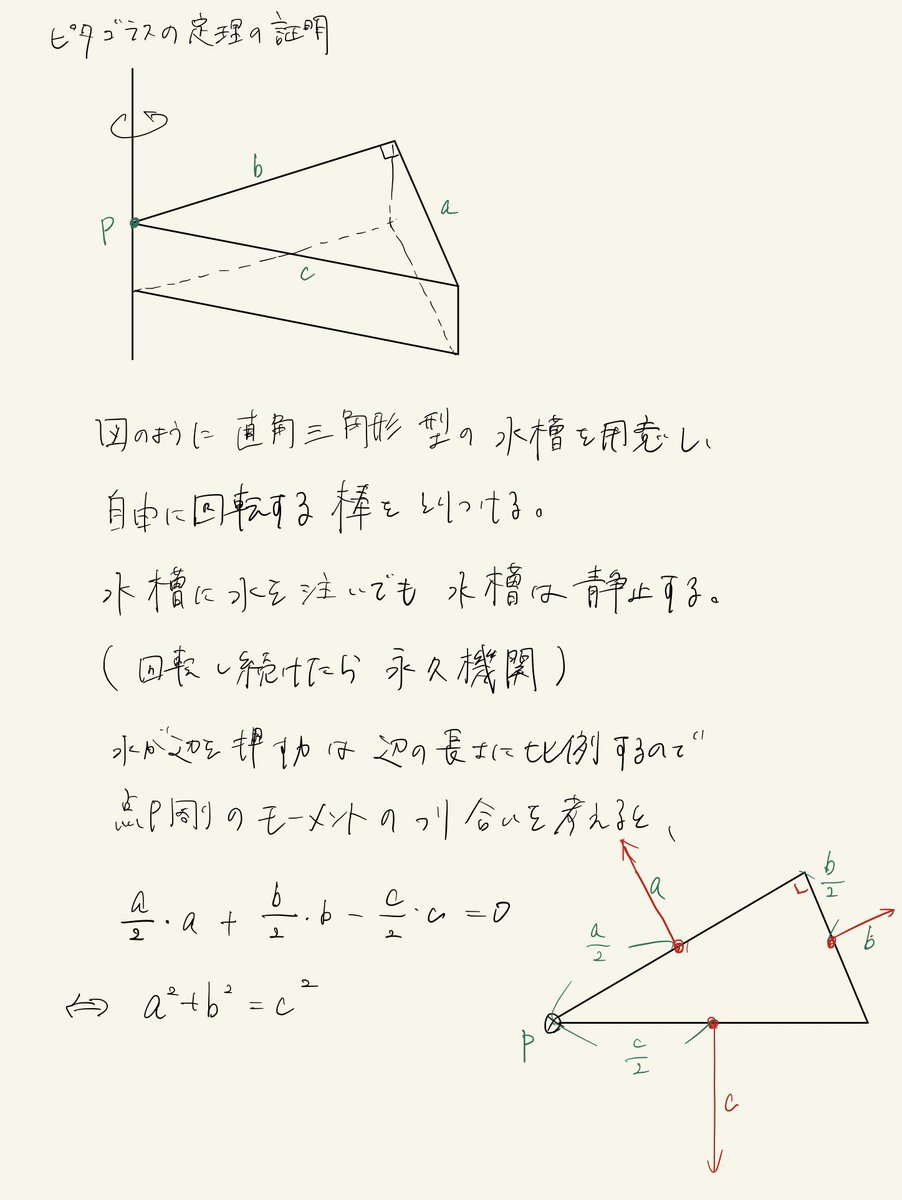 ピタゴラスの定理の証明
b
a
P
c
図のように直角三角形型の水槽を用意し、
自由に回転する棒をとりつける。
水槽に水を注いでも水槽は静止する。
(回転し続けたら永久機関)
水が辺を押す力は辺の長さに比例するので
点P周りのモーメントのつり合いを考えると、
a/2・a + b/2・b - c/2・c = 0
⇔ a²+b²=c²
a
b/2
a/2
b
P
c/2
c